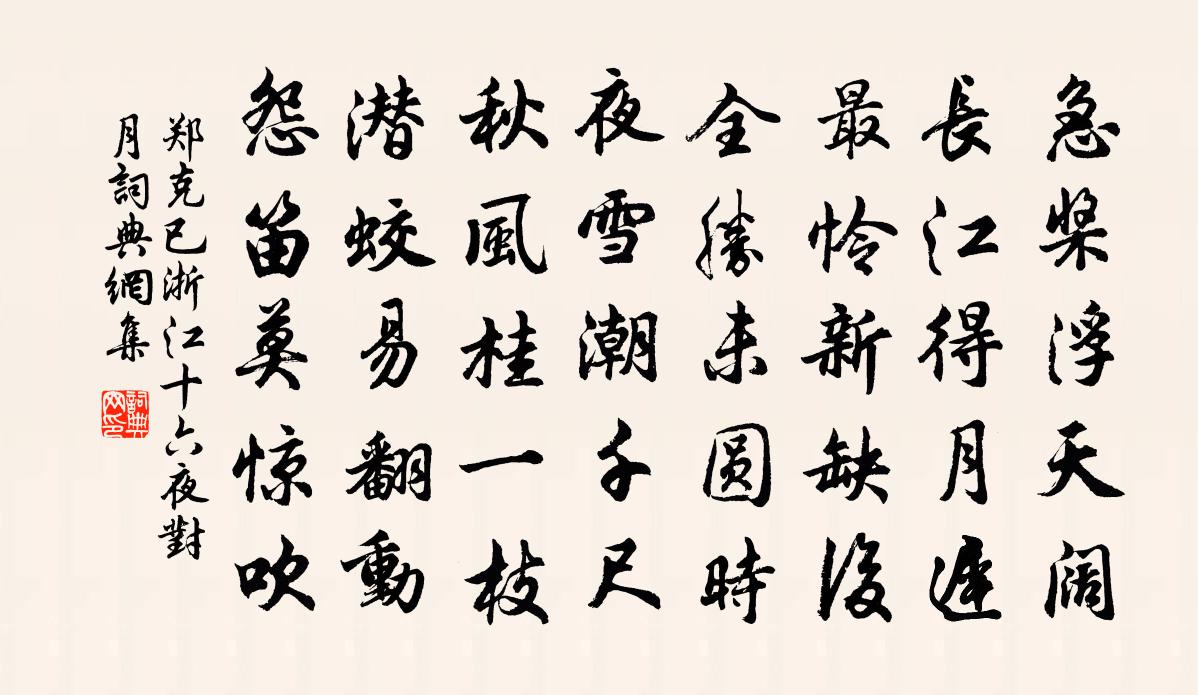 急桨浮天阔
長江得月遲
最怜新缺後
全勝未圆時
夜雪潮千尺
秋風桂一枝
潜蛟易翻動
怨笛莫惊吹
郑克己浙江十六夜對
月詞典網集
詞典
网印